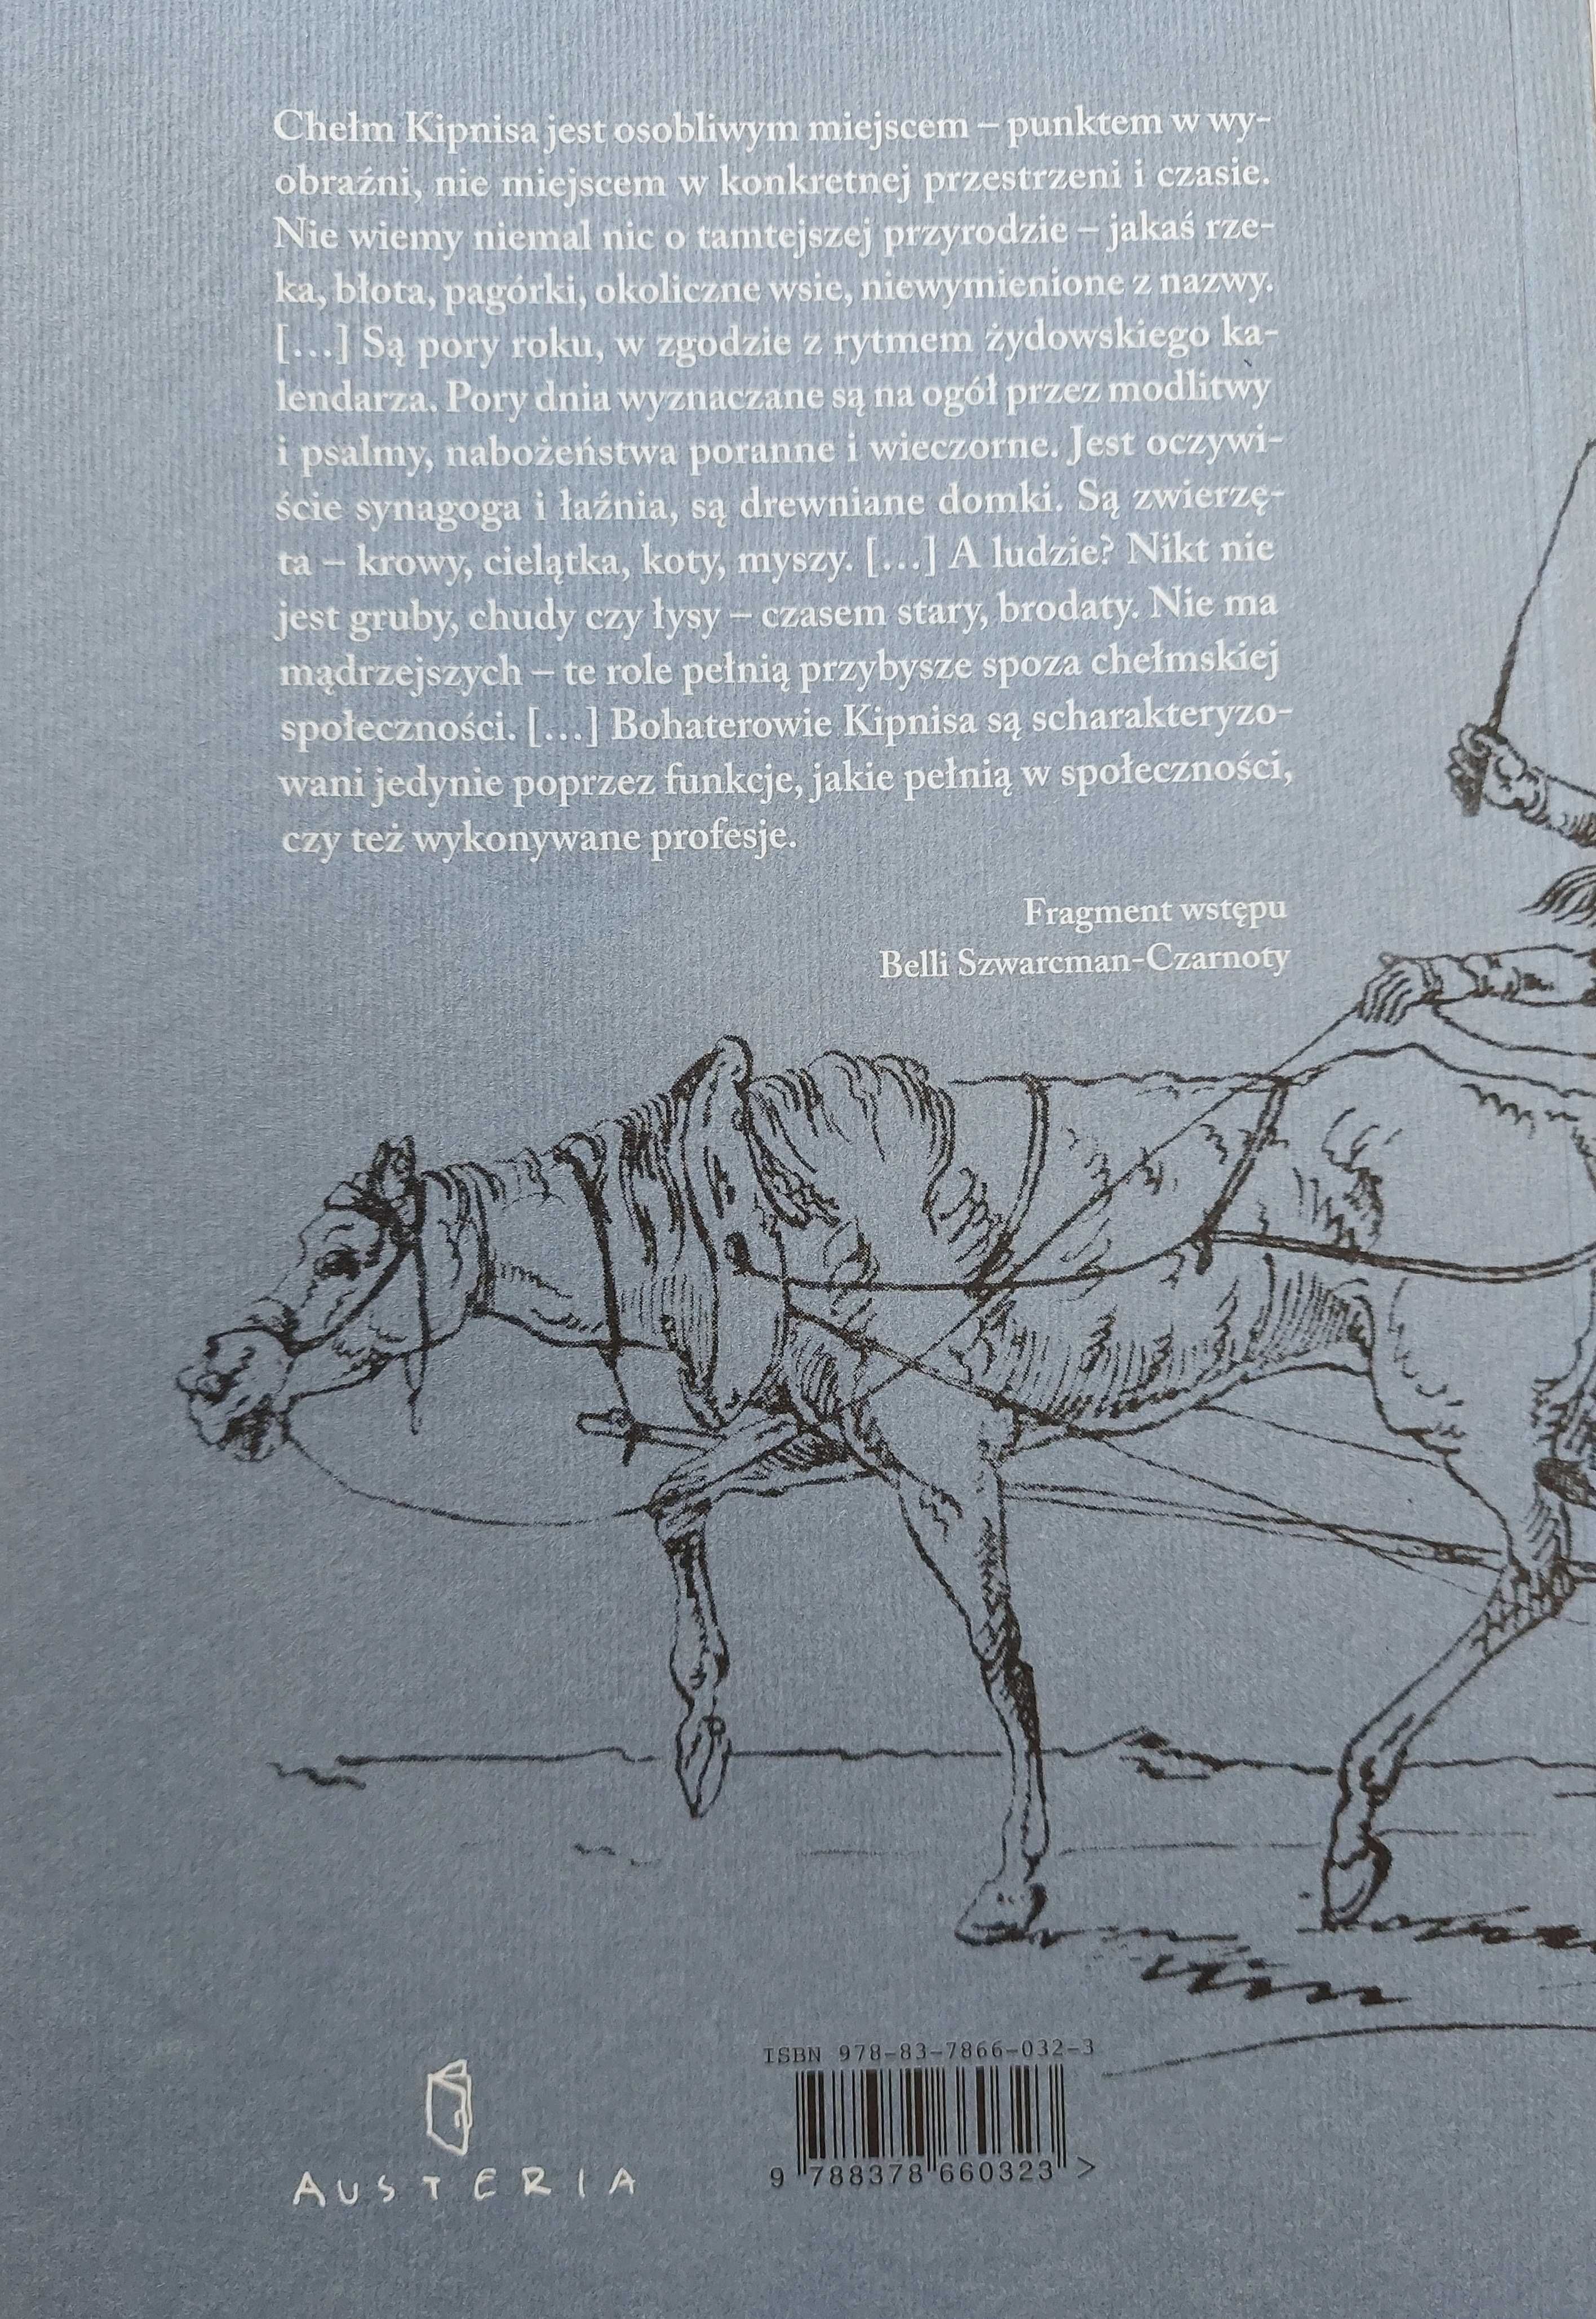 Chełm Kipnisa jest osobliwym miejscem – punktem w wy-
obraźni, nie miejscem w konkretnej przestrzeni i czasie.
Nie wiemy niemal nic o tamtejszej przyrodzie – jakaś rze-
ka, błota, pagórki, okoliczne wsie, niewymienione z nazwy.
[…] Są pory roku, w zgodzie z rytmem żydowskiego ka-
lendarza. Pory dnia wyznaczane są na ogół przez modlitwy
i psalmy, nabożeństwa poranne i wieczorne. Jest oczywi-
ście synagoga i łaźnia, są drewniane domki. Są zwierzę-
ta – krowy, cielątka, koty, myszy. […] A ludzie? Nikt nie
jest gruby, chudy czy łysy – czasem stary, brodaty. Nie ma
mądrzejszych – te role pełnią przybysze spoza chełmskiej
społeczności. […] Bohaterowie Kipnisa są scharakteryzo-
wani jedynie poprzez funkcje, jakie pełnią w społeczności,
czy też wykonywane profesje.
Fragment wstępu
Belli Szwarcman-Czarnoty
ISBN 978-83-7866-032-3
9 788378 660323 >
AUSTERIA